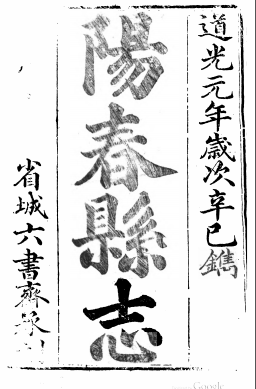 道光元年歲次辛巳鐫
陽春縣志
省城六書齋承刊
Google